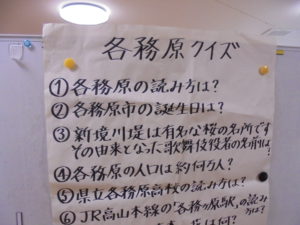 各務原クイズ
①各務原の読み方は?
②各務原市の誕生日は?
③新境川堤は有名な桜の名所です
その由来となった歌舞伎役者の名前は?
④各務原の人口は約何万人?
⑤県立各務原高校の読み方は?
⑥JR高山本線の「各務ヶ原駅」の読み
方は?
花は何?